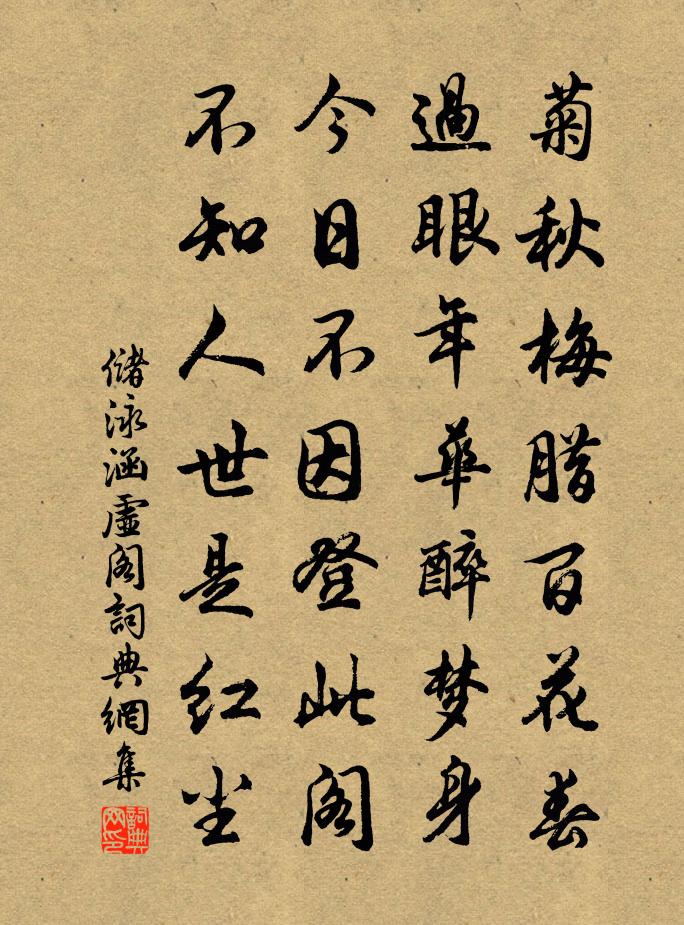 菊秋梅腊百花春
過眼年華醉梦身
今日不因登此阁
不知人世是红尘
儲泳涵虛阁詞典網集
詞典網印